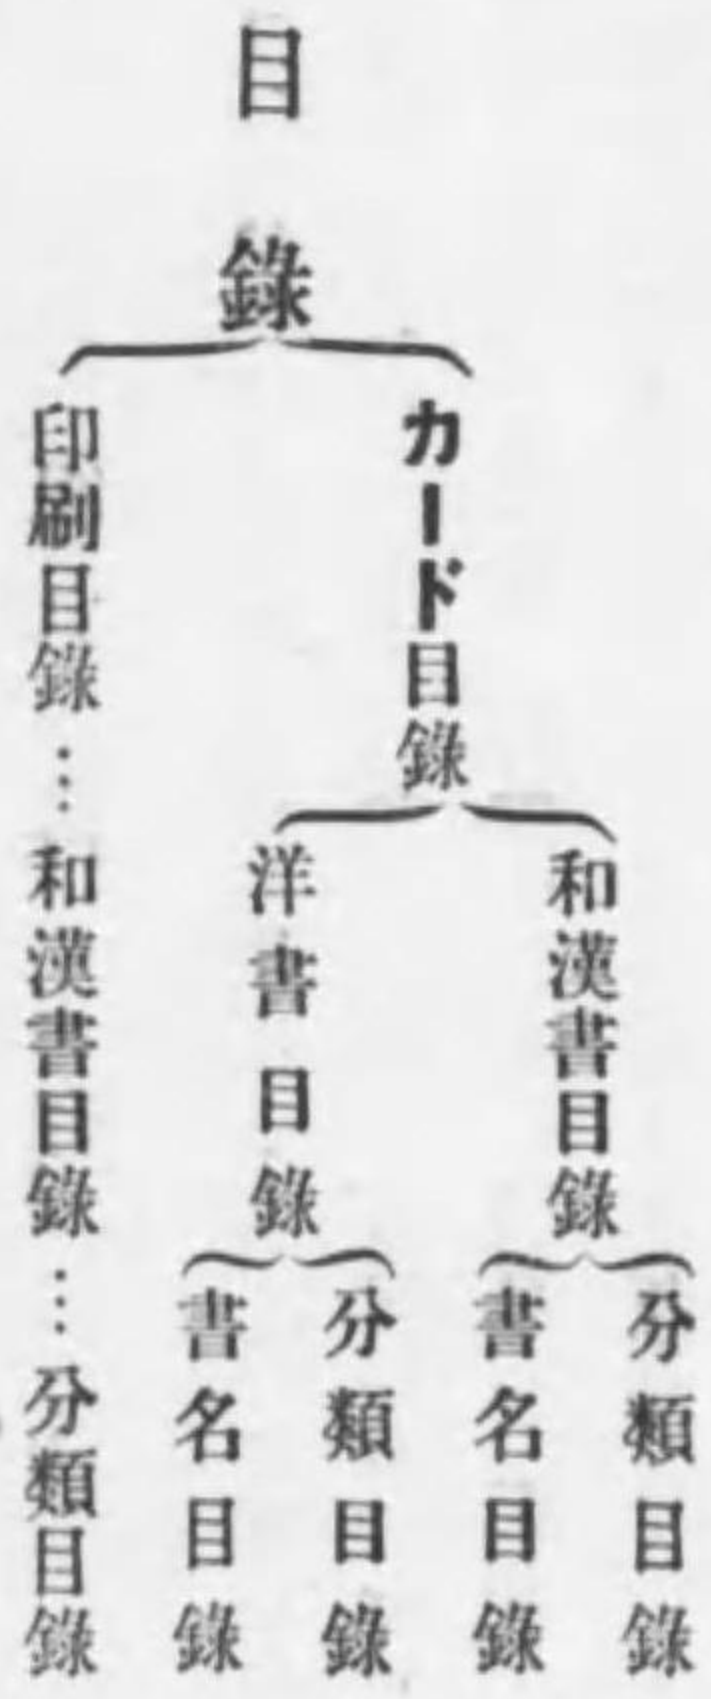 目錄
カード目錄
和漢書目錄
分類目錄
書名目錄
洋書目錄
分類目錄
書名目錄
印刷目錄…和漢書目錄…分類目錄